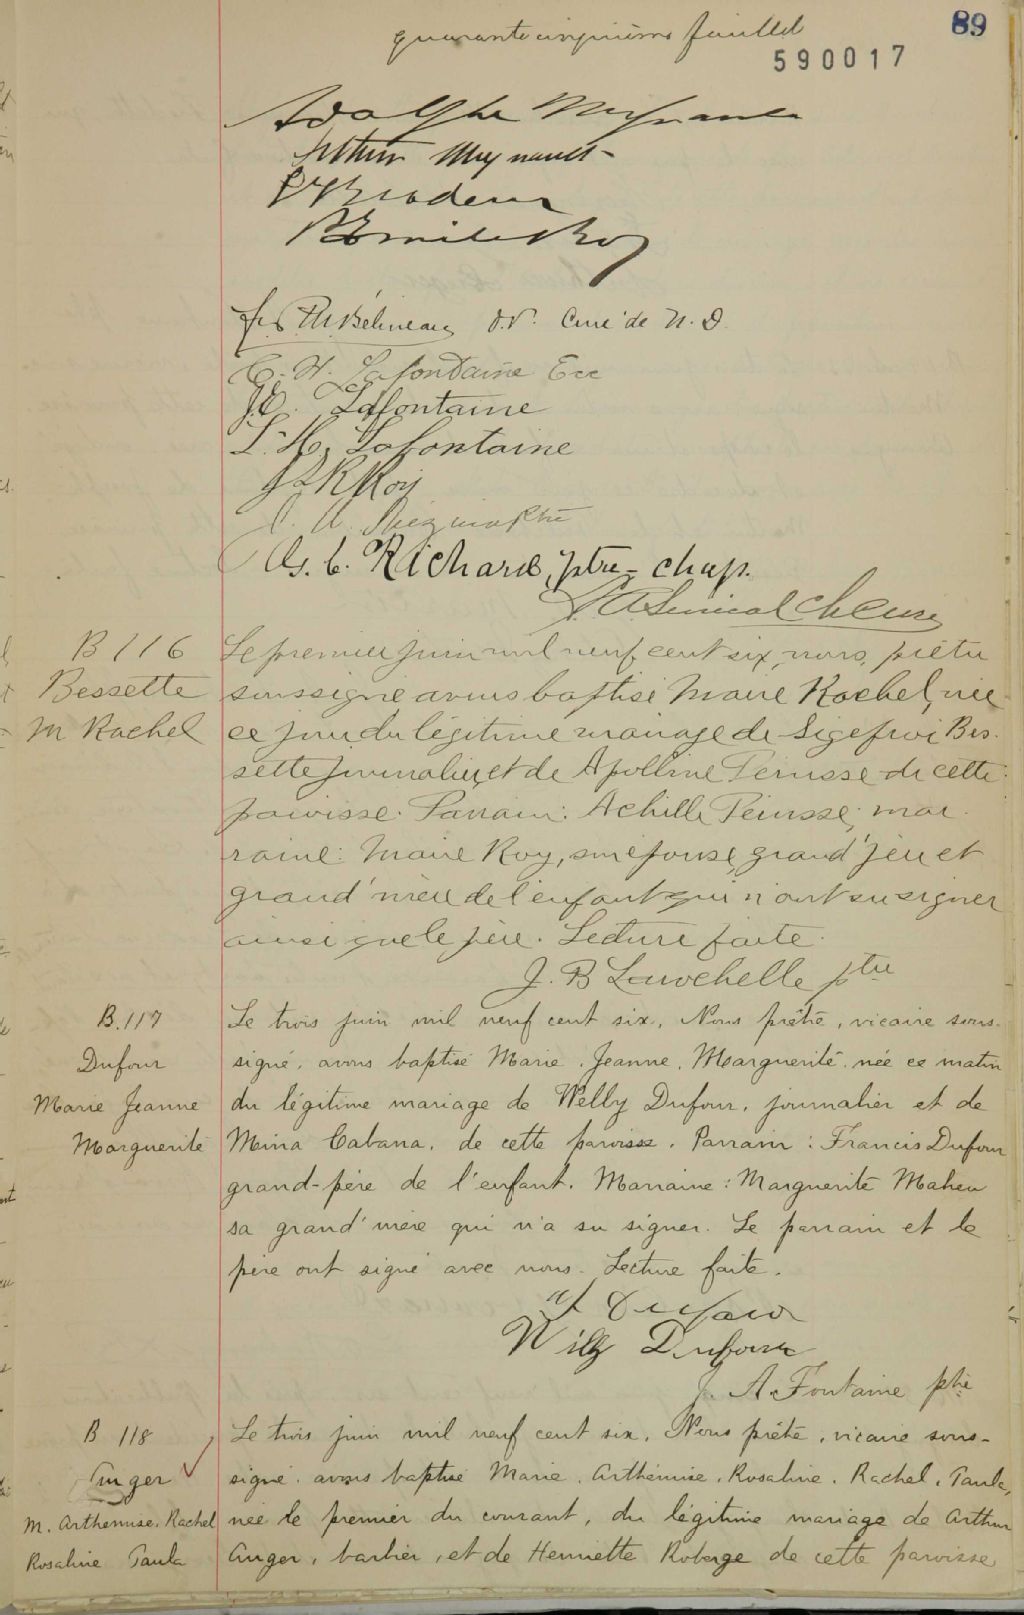 89
quarante cinquième feuillet
590017
Adolphe
Arthur
Brodeur
Emile Roy
Curé de N. D.
Lafontaine Ecc
J. E. Lafontaine
L. H. Lafontaine
Roy
Richard, ptre - chap.
B 116
Bessette
M Rachel
Le premier juin mil neuf cent six, nous, prêtre
soussigné avons baptisé Marie Rachel, née
ce jour du légitime mariage de Sigefroi Bes-
sette journalier, et de Apolline Perusse de cette
paroisse. Parrain: Achille Perusse; mar-
raine: Marie Roy, son épouse, grand'père et
grand'mère de l'enfant qui n'ont su signer
ainsi que le père. Lecture faite.
J. B Larochelle ptre
B. 117
Dufour
Marie Jeanne
Marguerite
Le trois juin mil neuf cent six, Nous prêtre, vicaire sous-
signé, avons baptisé Marie, Jeanne, Marguerite, née ce matin
du légitime mariage de Welly Dufour, journalier et de
Mina Cabana, de cette paroisse. Parrain: Francis Dufour
grand-père de l'enfant. Marraine: Marguerite Maheu
sa grand'mère qui n'a su signer. Le parrain et le
père ont signé avec nous. Lecture faite.
Dufour
Willy Dufour
J. A. Fontaine ptre
B 118
Auger
M. Arthemise. Rachel
Rosaline Paula
Le trois juin mil neuf cent six, Nous prêtre, vicaire sous-
signé, avons baptisé Marie, Arthémise, Rosaline, Rachel, Paula,
née le premier du courant, du légitime mariage de Arthur
Auger, barbier, et de Henriette Roberge de cette paroisse